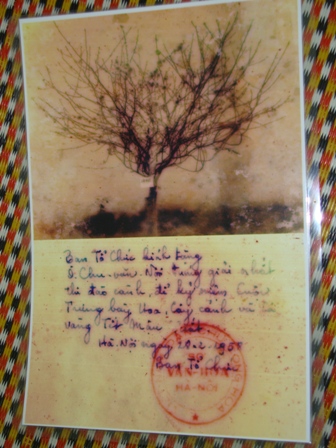 Ban Tổ Chức kính tặng
Ô. Chu-văn-Nội trúng giải nhất
thi đào cành, để kỷ niệm Cuộc
Trưng bày Hoa, Cây cảnh và Cá
vàng Tết Mậu Tuất
Hà-Nội ngày 20.2.1958
Ban Tổ chức
HÀ-NỘI